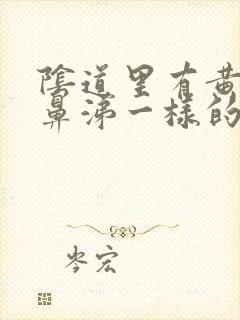 陰道里有黄
鼻涕一樣的
岑宏